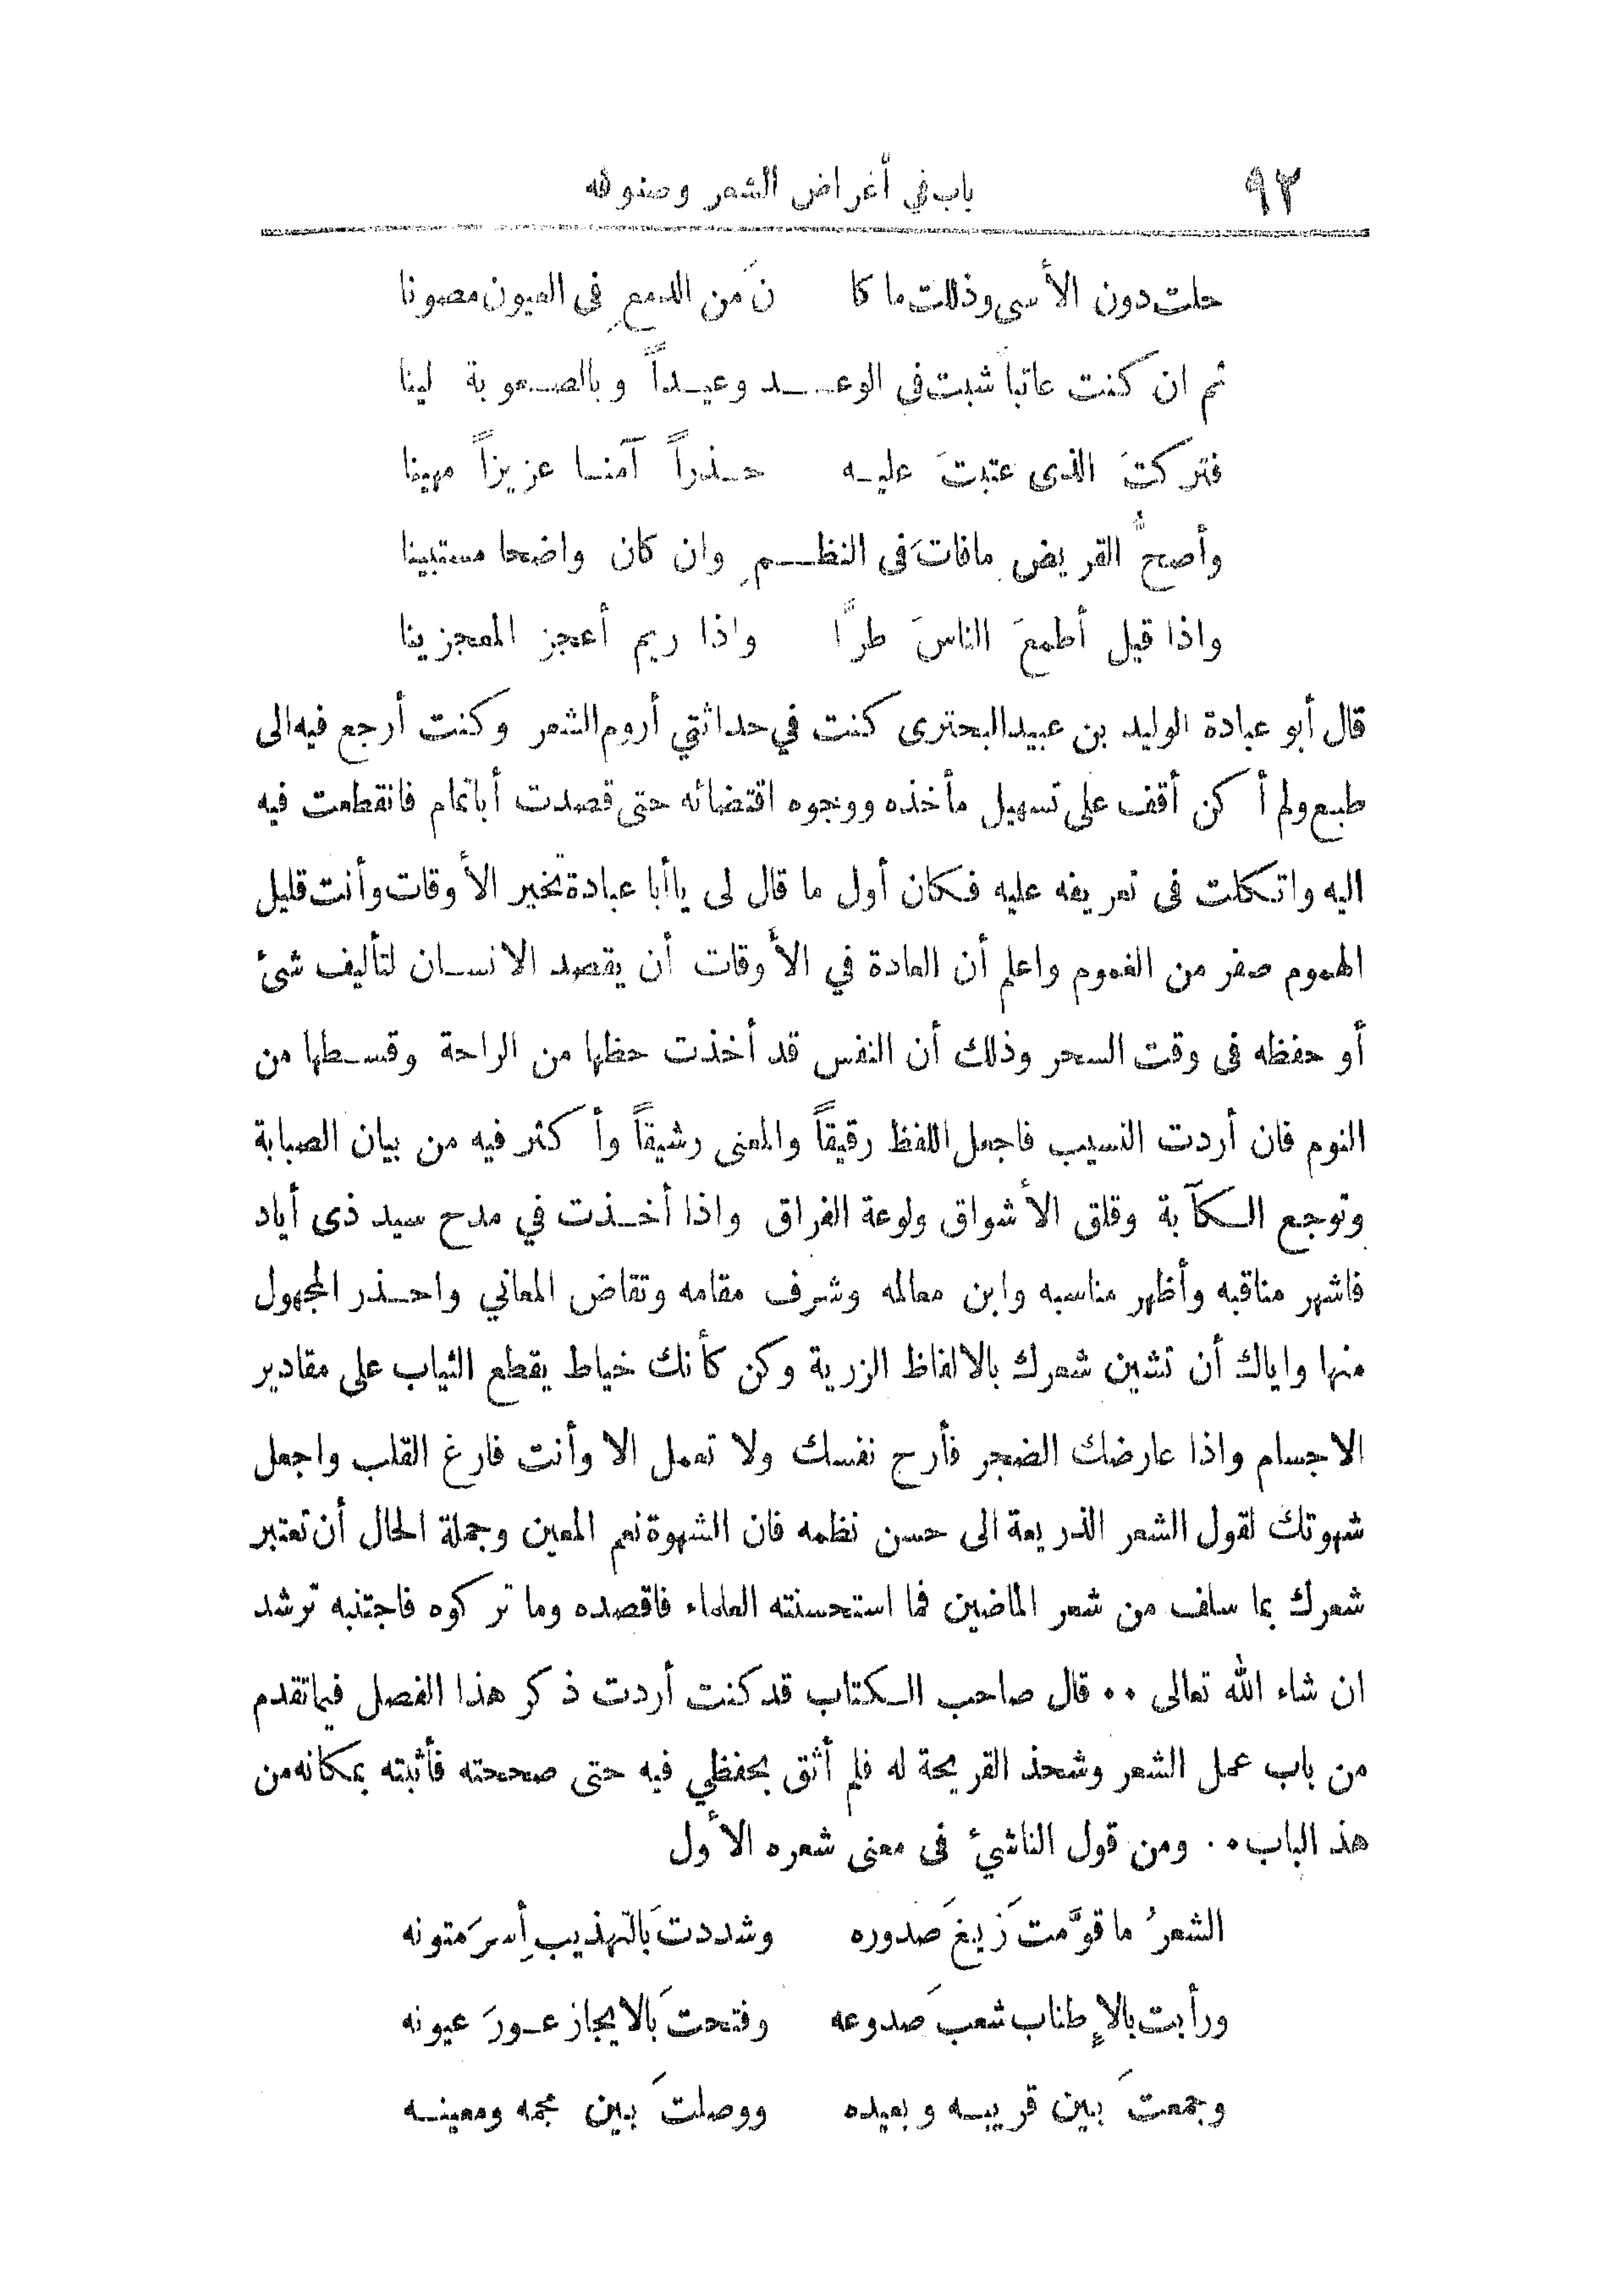 ٩٢ باب في أغراض الشعر وصنوفه
حلت دون الأسى وذللت ما كا نَ من الدمعِ فى العيون مصونا
ثم ان كنت عاتباً شبت فى الوعـــد وعيـداً وبالصـعوبة لينا
فتركتَ الذى عتبتَ عليـه حـذراً آمنـا عزيزاً مهينا
وأصحُّ القريض مافاتَ فى النظـــمِ وان كان واضحا مستبينا
واذا قيل أطمعَ الناسَ طرًّا واذا ريم أعجز المعجزينا
قال أبو عبادة الوليد بن عبيد البحترى كنت في حداثتي أروم الشعر وكنت أرجع فيه الى
طبع ولم أكن أقف على تسهيل مأخذه ووجوه اقتضائه حتى قصدت أباتمام فانقطعت فيه
اليه واتكلت فى تعريفه عليه فكان أول ما قال لى ياأبا عبادة تخير الأوقات وأنت قليل
الهموم صفر من الغموم واعلم أن العادة في الأوقات أن يقصد الانسـان لتأليف شئ
أو حفظه فى وقت السحر وذلك أن النفس قد أخذت حظها من الراحة وقسـطها من
النوم فان أردت النسيب فاجعل اللفظ رقيقاً والمعنى رشيقاً وأكثر فيه من بيان الصبابة
وتوجع الـكآبة وقلق الأشواق ولوعة الفراق واذا أخـذت في مدح سيد ذى أياد
فاشهر مناقبه وأظهر مناسبه وابن معالمه وشرف مقامه وتقاض المعاني واحـذر المجهول
منها واياك أن تشين شعرك بالالفاظ الزرية وكن كأنك خياط يقطع الثياب على مقادير
الاجسام واذا عارضك الضجر فأرح نفسك ولا تعمل الا وأنت فارغ القلب واجعل
شهوتك لقول الشعر الذريعة الى حسن نظمه فان الشهوة نعم المعين وجملة الحال أن تعتبر
شعرك بما سلف من شعر الماضين فما استحسنته العلماء فاقصده وما تركوه فاجتنبه ترشد
ان شاء الله تعالى ٠٠ قال صاحب الـكتاب قد كنت أردت ذكر هذا الفصل فيماتقدم
من باب عمل الشعر وشحذ القريحة له فلم أثق بحفظي فيه حتى صححته فأثبته بمكانه من
هذ الباب ٠٠ ومن قول الناشئ فى معنى شعره الأول
الشعرُ ما قوَّمتَ زيغَ صدوره وشددتَ بالتهذيب أسرَ متونه
ورأبت بالإِطناب شعبَ صدوعه وفتحتَ بالايجاز عـورَ عيونه
وجمعتَ بين قريبـه وبعيده ووصلتَ بين مجمه ومعينـه